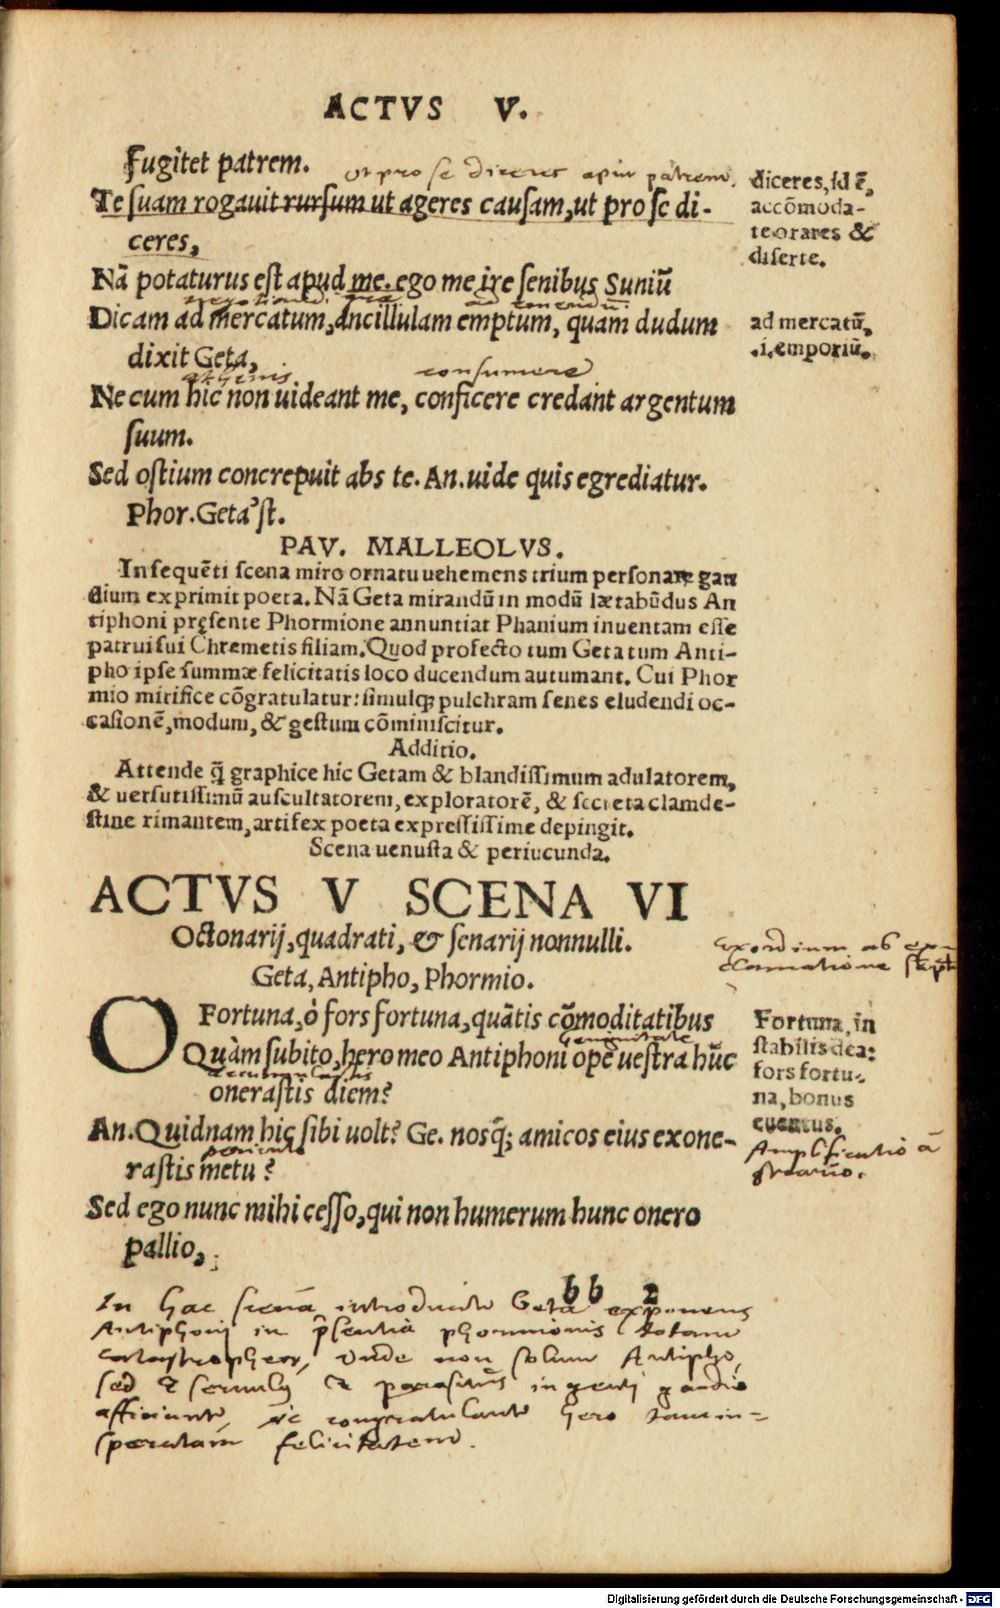 ACTVS V.
Fugitet patrem.
ut pro se diceres apud patrem.
Te suam rogauit rursum ut ageres causam, ut pro se di-
ceres,
diceres, id ē,
accōmoda-
te orares &
diserte.
Nā potaturus est apud me. ego me ire senibus Suniū
negotiandi
ad emendū
Dicam ad mercatum, ancillulam emptum, quam dudum
dixit Geta,
ad mercatū,
.i. emporiū.
athenis
consumere
Ne cum hic non uideant me, conficere credant argentum
suum.
Sed ostium concrepuit abs te. An. uide quis egrediatur.
Phor. Geta'st.
PAV. MALLEOLVS.
In sequēti scena miro ornatu uehemens trium personarum gau
dium exprimit poeta. Nā Geta mirandū in modū lætabūdus An
tiphoni pręsente Phormione annuntiat Phanium inuentam esse
patrui sui Chremetis filiam. Quod profecto tum Geta tum Anti-
pho ipse summæ felicitatis loco ducendum autumant. Cui Phor
mio mirifice cōgratulatur: simulq; pulchram senes eludendi oc-
casionē, modum, & gestum cōminiscitur.
Additio.
Attende q̄ graphice hic Getam & blandissimum adulatorem,
& uersutissimū auscultatorem, exploratorē, & secreta clamde-
stine rimantem, artifex poeta expressissime depingit.
Scena uenusta & periucunda.
ACTVS V SCENA VI
Octonarij, quadrati, & senarij nonnulli.
Geta, Antipho, Phormio.
Exordium ab ex-
clamatione
O Fortuna, ò fors fortuna, quātis cōmoditatibus
Quàm subito, hero meo Antiphoni opē uestra hūc
onerastis diem?
Fortuna, in
stabilis dea:
fors fortu-
na, bonus
euentus.
An. Quidnam hic sibi uolt? Ge. nosq; amicos eius exone-
rastis metu?
Amplificatio à
Sed ego nunc mihi cesso, qui non humerum hunc onero
pallio,
bb 2
In hac scena introducitur Geta exponens
Antiphoni in pr̄sentia phormionis totam
catastrophen, unde non solum Antipho,
sed & seruulus & parasitus ingenti gaudio
afficiuntur, ac congratulantur hero tam in=
speratam felicitatem.
Digitalisierung gefördert durch die Deutsche Forschungsgemeinschaft - DFG